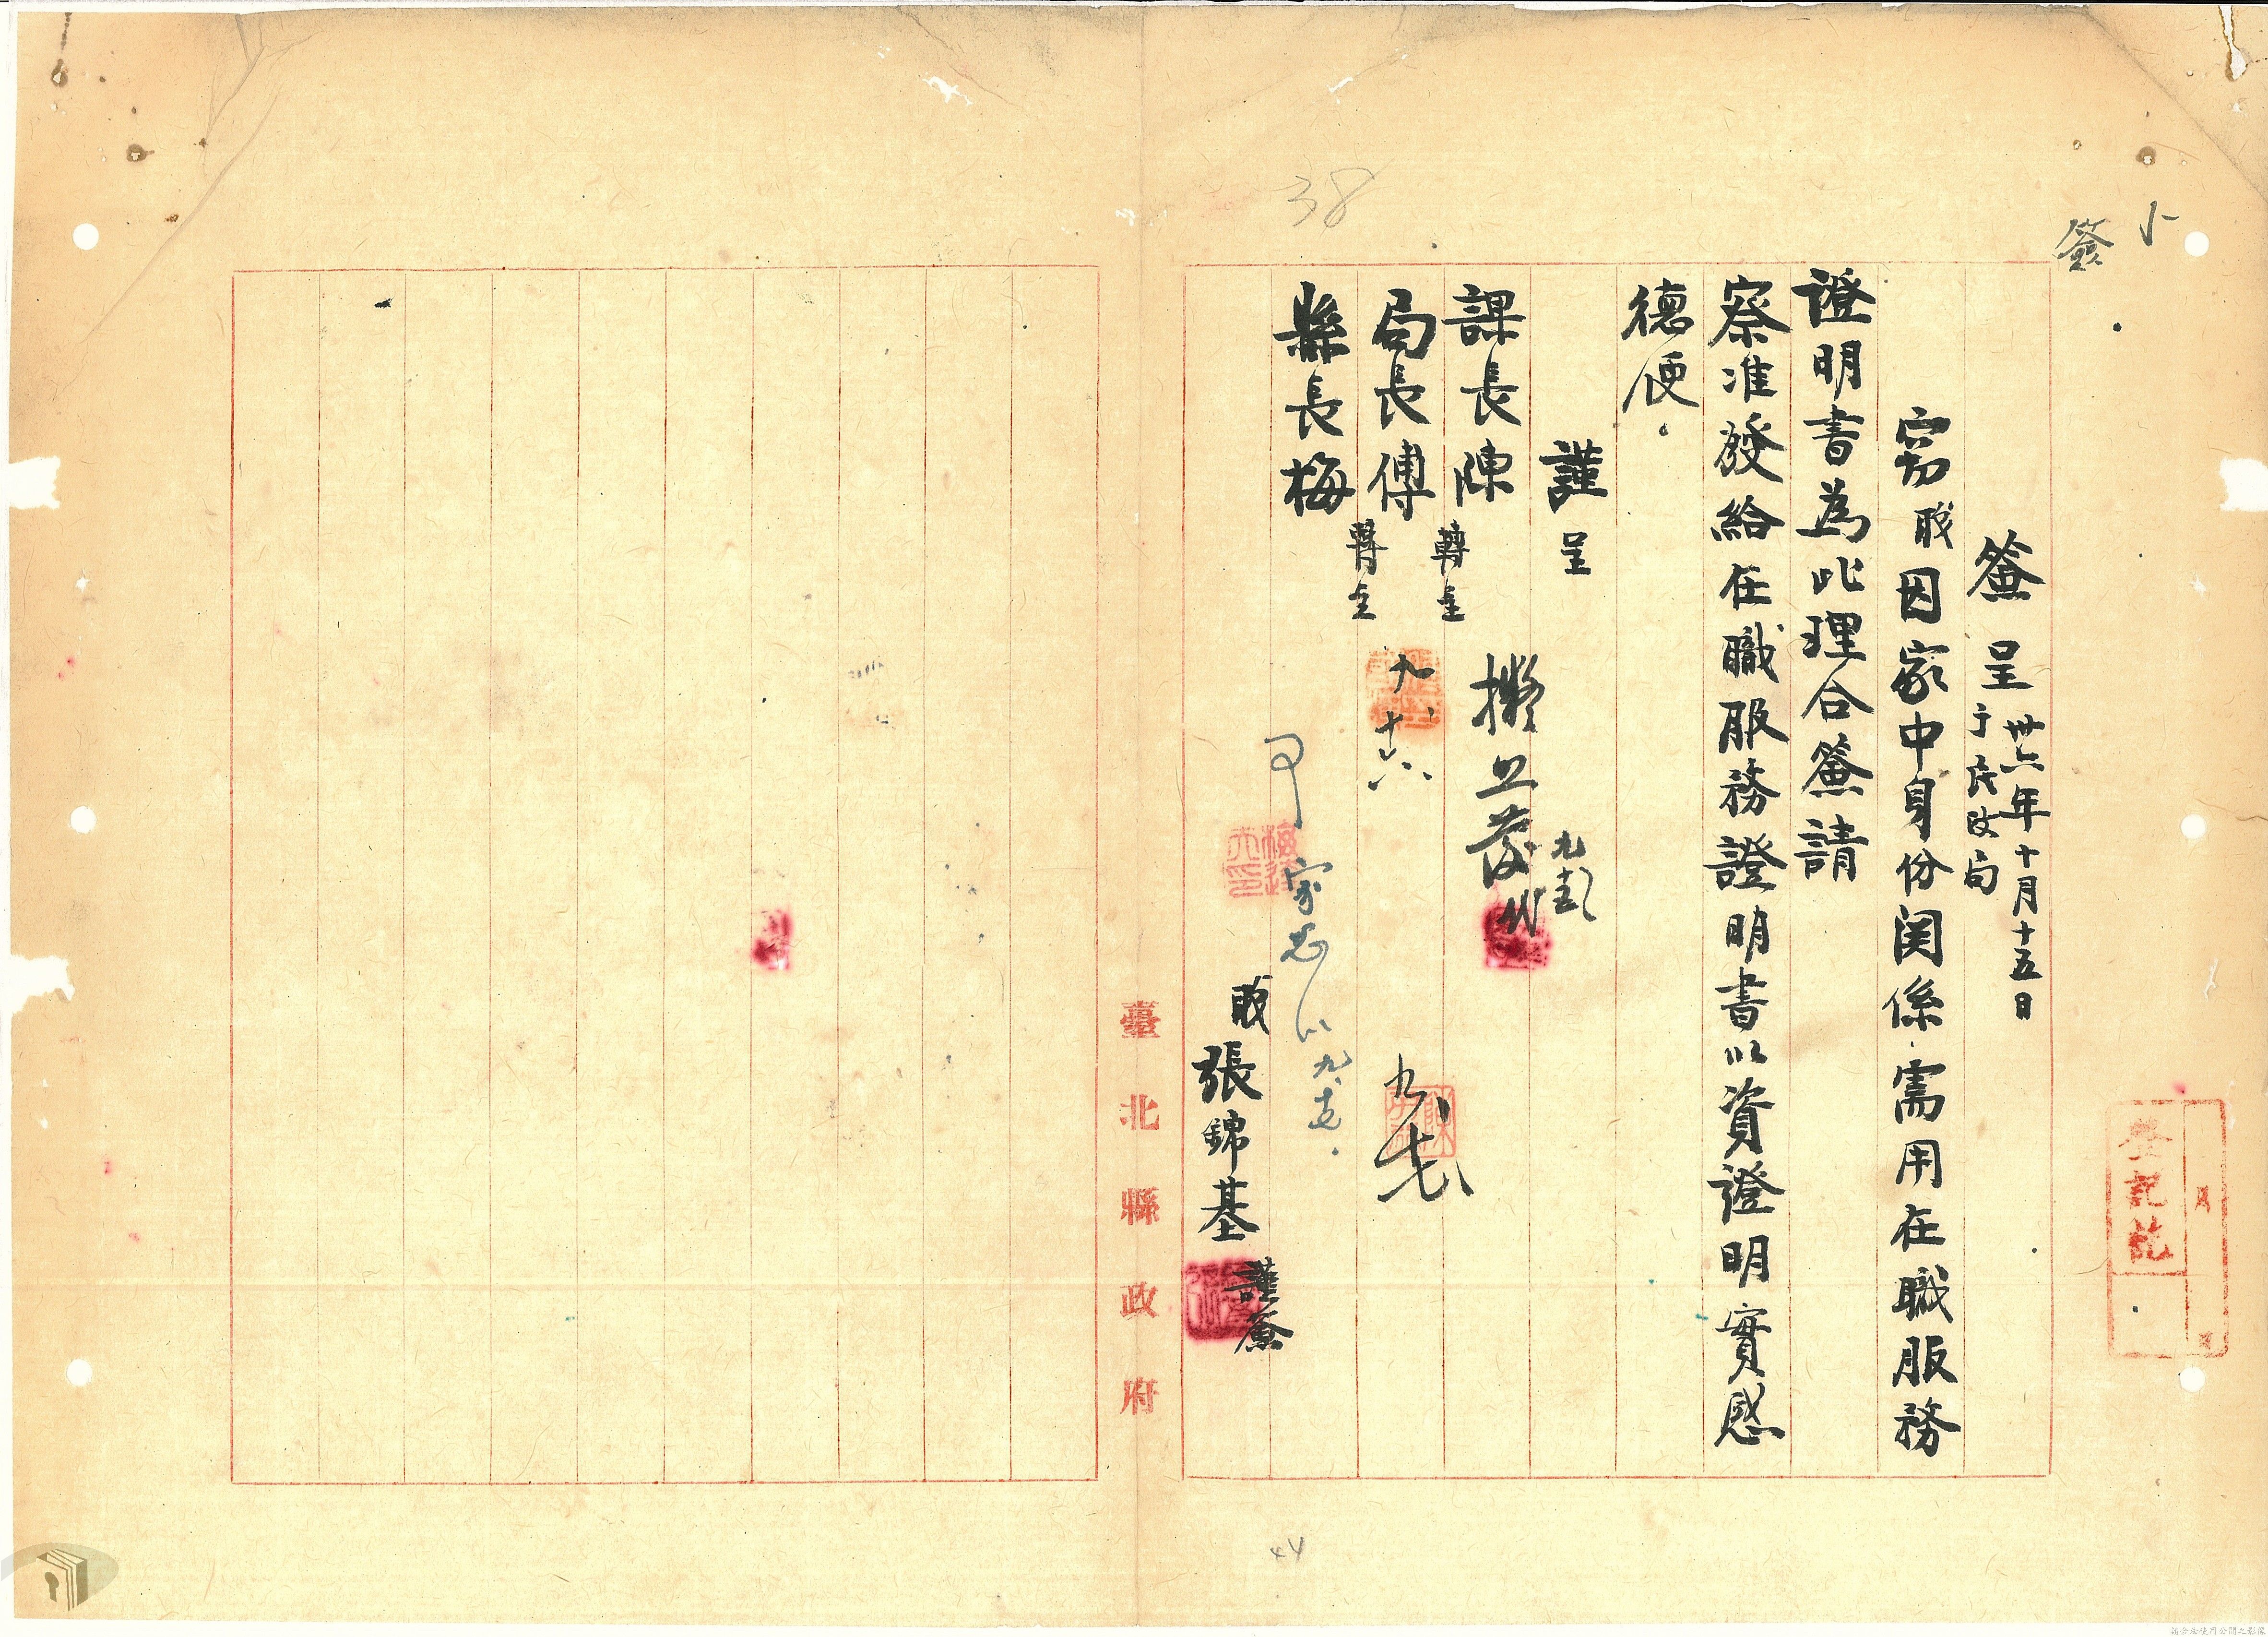 簽
簽呈 卅六年十月十五日
于民政局
窃職因家中身份関係需用在職服務
證明書為此理合簽請
察准發給在職服務證明書以資證明實感
德便。
謹呈
課長陳 轉呈
局長傅 轉呈
縣長梅
擬照發
代
職張錦基 謹簽
臺北縣政府
登記訖
月
38
44
請合法使用公開之影像